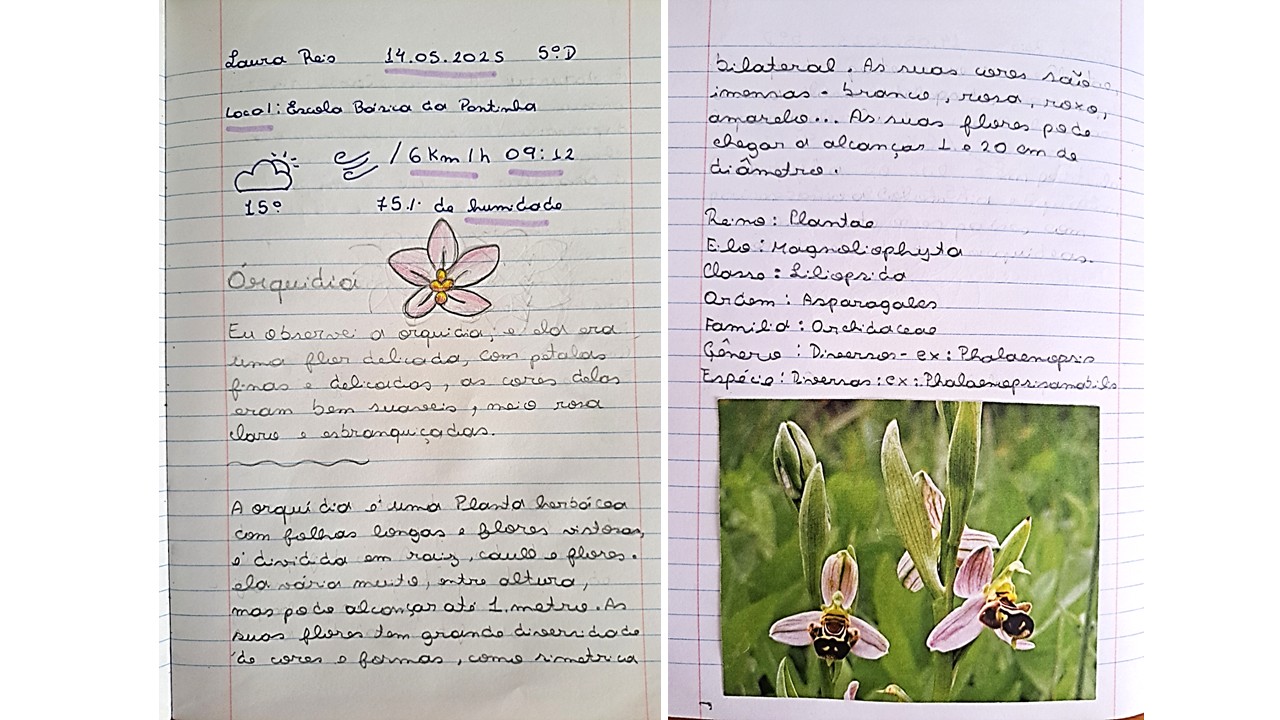 Laura Reis 14.05.2025 5ºD
Local: Escola Básica da Pontinha
/ 6 Km/h 09:12
15º 75% de humidade
Órquidiá
Eu observei a orquidia, e ela era
uma flier delicada, com petalas
finas e delicadas, as cores delas
eram bem suaveis, meio rosa
claro e esbranquiçadas.
A orquídia é uma Planta herbácea
com folhas longas e flores vistosas,
é dividida em raiz, caule e flores.
ela vária muito, entre altura,
mas pode alcançar até 1.metro. As
suas flores tem grande diversidade
de cores e formas, como simetrica
bilateral. As suas cores são
imensas - branco, rosa, roxo,
amarelo... As suas flores pode
chegar a alcançar 1 e 20 cm de
diâmetro.
Reino: Plantae
Filo: Magnoliophyta
Classe: Liliopsida
Ordem: Asparagales
Familia: Orchidaceae
Gênero: Diversos- ex: Phalaenopsis
Espécie: Diversas: ex: Phalaenopsisamabilis